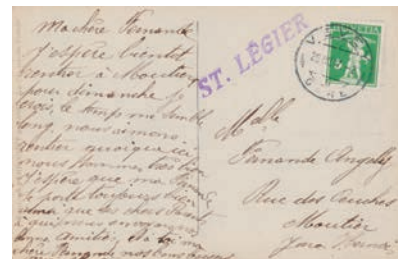 Ma chère Fernande
J'espère bientôt
rentrer à Moutier
pour dimanche je
crois, le temps me semble
long, nous aimons
rentrer quoique ici
nous sommes très bien
J'espère que ma
se porte toujours bien
que tes chers Parents
à qui nous envoyons
bonne amitiés, et à toi ma
chère Fernande nos bons baisers
ST. LÉGIER
HELVETIA
5
Melle
Fernande
Rue des
Moutier
Jura Bernois